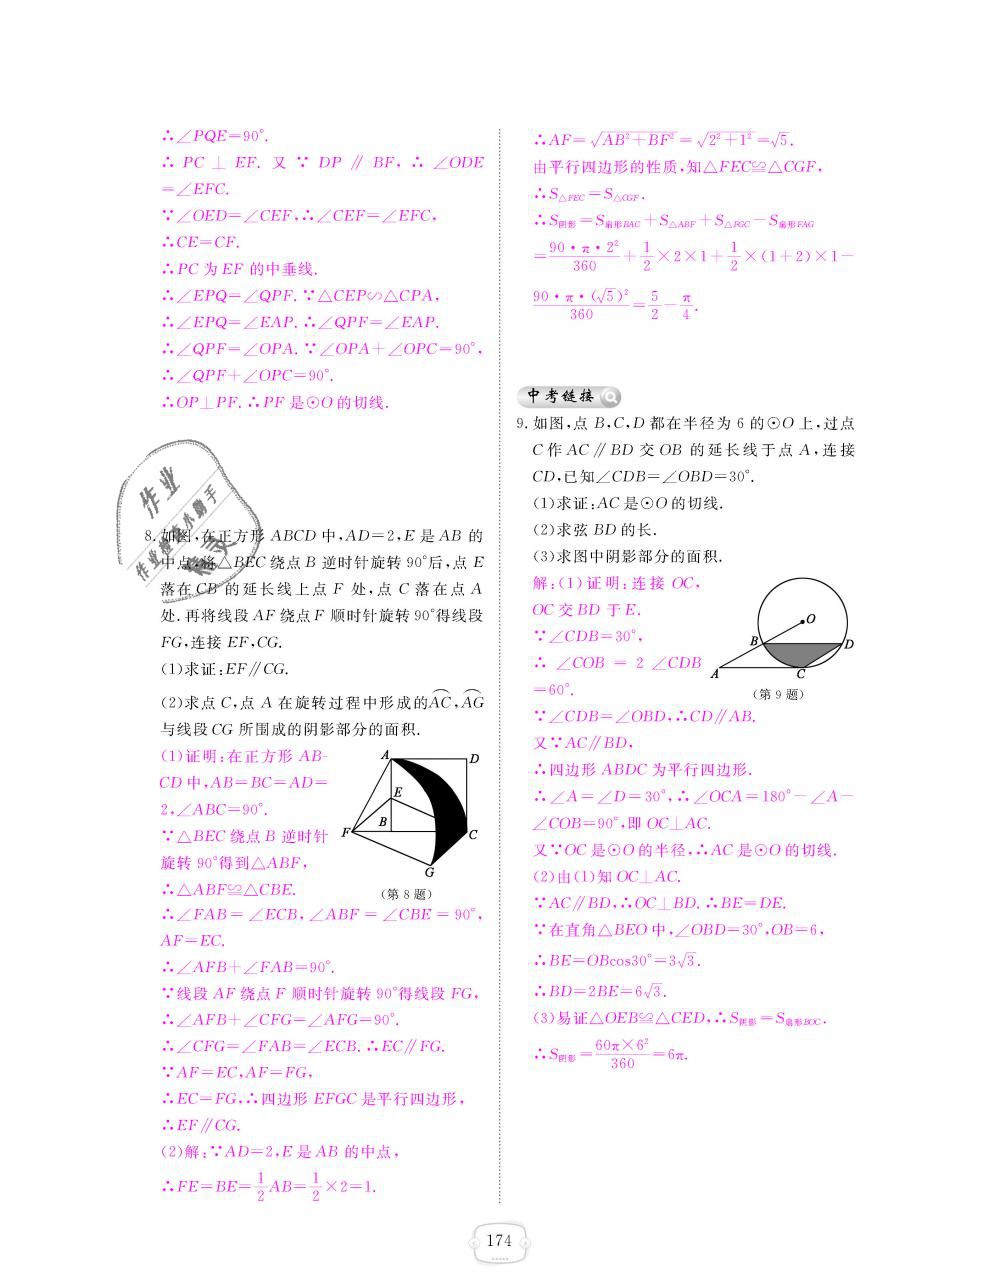 ∴∠PQE=90°.
∴ PC ⊥ EF. 又 ∵ DP ∥ BF, ∴ ∠ODE
=∠EFC.
∵∠OED=∠CEF,∴∠CEF=∠EFC,
∴CE=CF.
∴PC为EF的中垂线.
∴∠EPQ=∠QPF.∵△CEP∽△CPA,
∴∠EPQ=∠EAP.∴∠QPF=∠EAP.
∴∠QPF=∠OPA.∵∠OPA+∠OPC=90°,
∴∠QPF+∠OPC=90°.
∴OP⊥PF.∴PF是⊙O的切线.
作业
作业检查小助手
精灵
8.如图,在正方形 ABCD 中,AD=2,E 是 AB 的
中点,将△BEC绕点 B 逆时针旋转 90°后,点 E
落在 CB 的延长线上点 F 处,点 C 落在点 A
处.再将线段 AF 绕点 F 顺时针旋转 90°得线段
FG,连接 EF,CG.
(1)求证:EF∥CG.
(2)求点C,点 A 在旋转过程中形成的AC,AG
与线段CG 所围成的阴影部分的面积.
(1)证明:在正方形 AB-
CD中,AB=BC=AD=
2,∠ABC=90°.
∵△BEC绕点B逆时针
旋转 90°得到△ABF,
∴△ABF≌△CBE.
A
D
E
B
F
C
G
(第 8 题)
∴∠FAB=∠ECB,∠ABF=∠CBE=90°,
AF=EC.
∴∠AFB+∠FAB=90°.
∵线段 AF 绕点 F 顺时针旋转 90°得线段 FG,
∴∠AFB+∠CFG=∠AFG=90°.
∴∠CFG=∠FAB=∠ECB.∴EC∥FG.
∵AF=EC,AF=FG,
∴EC=FG,∴四边形 EFGC 是平行四边形,
∴EF∥CG.
(2)解:∵AD=2,E是 AB 的中点,
∴FE=BE=1/2AB=1/2×2=1.
∴AF=√(AB²+BF²)=√(2²+1²)=√5.
由平行四边形的性质,知△FEC≌△CGF,
∴S△FEC=S△CGF.
∴S阴影=S扇形BAC+S△ABF+S△FGC-S扇形FAG
=90·π·2²/360+1/2×2×1+1/2×(1+2)×1-
90·π·(√5)²/360=5/2-π/4.
中考链接
9.如图,点 B,C,D 都在半径为 6 的⊙O 上,过点
C 作 AC∥BD 交 OB 的延长线于点 A,连接
CD,已知∠CDB=∠OBD=30°.
(1)求证:AC是⊙O的切线.
(2)求弦 BD的长.
(3)求图中阴影部分的面积.
解:(1)证明:连接 OC,
OC交BD于E.
∵∠CDB=30°,
∴ ∠COB = 2 ∠CDB
=60°.
O
B
D
A
C
(第 9 题)
∵∠CDB=∠OBD,∴CD∥AB.
又∵AC∥BD,
∴四边形 ABDC 为平行四边形.
∴∠A=∠D=30°,∴∠OCA=180°-∠A-
∠COB=90°,即 OC⊥AC.
又∵OC是⊙O的半径,∴AC是⊙O的切线.
(2)由(1)知 OC⊥AC.
∵AC∥BD,∴OC⊥BD.∴BE=DE.
∵在直角△BEO中,∠OBD=30°,OB=6,
∴BE=OBcos30°=3√3.
∴BD=2BE=6√3.
(3)易证△OEB≌△CED,∴S阴影=S扇形BOC.
∴S阴影=60π×6²/360=6π.
174